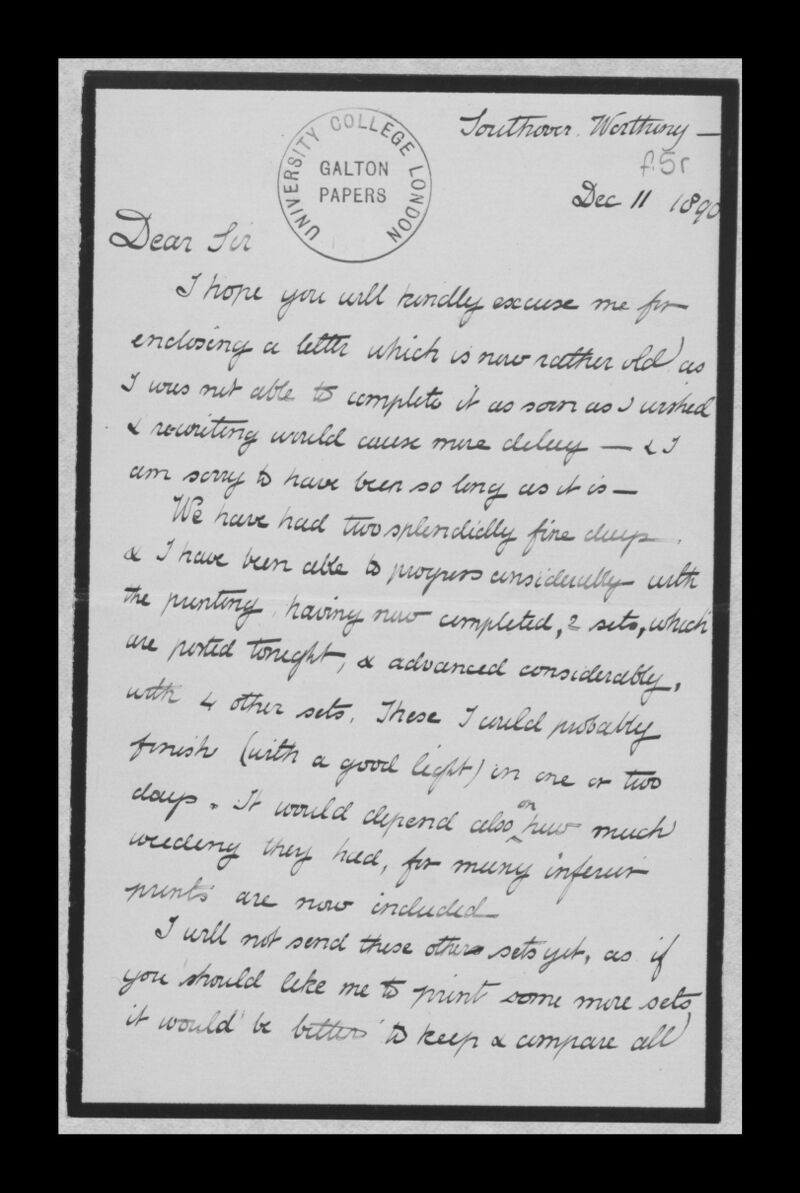 UNIVERSITY COLLEGE LONDON
GALTON
PAPERS
Southover. Worthing —
f.5r
Dec 11 1890
Dear Sir
I hope you will kindly excuse me for
enclosing a letter which is now rather old as
I was not able to complete it as soon as I wished
& rewriting would cause more delay — & I
am sorry to have been so long as it is —
We have had two splendidly fine days.
& I have been able to progress considerably with
the printing, having now completed, 2 sets, which
are posted tonight, & advanced considerably,
with 4 other sets. These I could probably
finish (with a good light) in one or two
days. It would depend also on how much
weeding they had, for many inferior
prints are now included —
I will not send these other sets yet, as if
you should like me to print some more sets
it would be better to keep & compare all